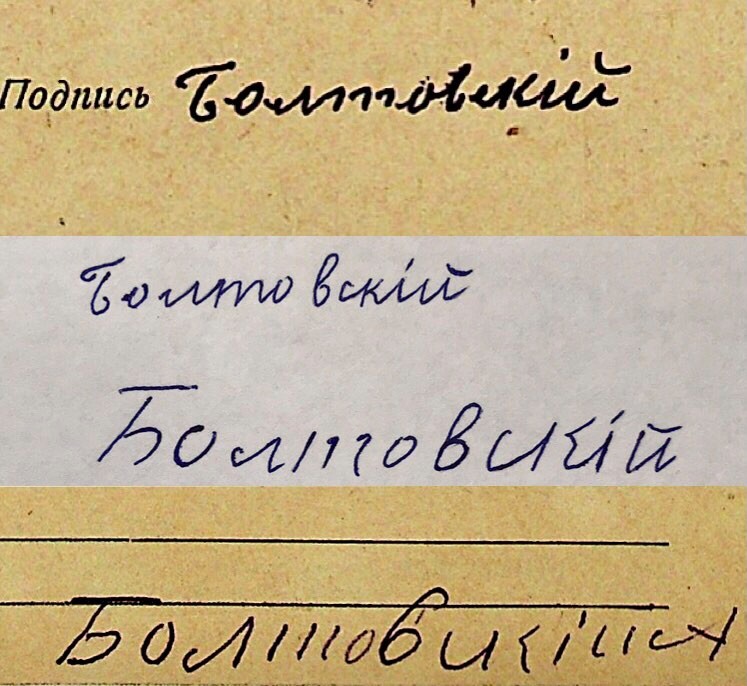 Подпись Болтовскій
Болтовскій
Болтовскій